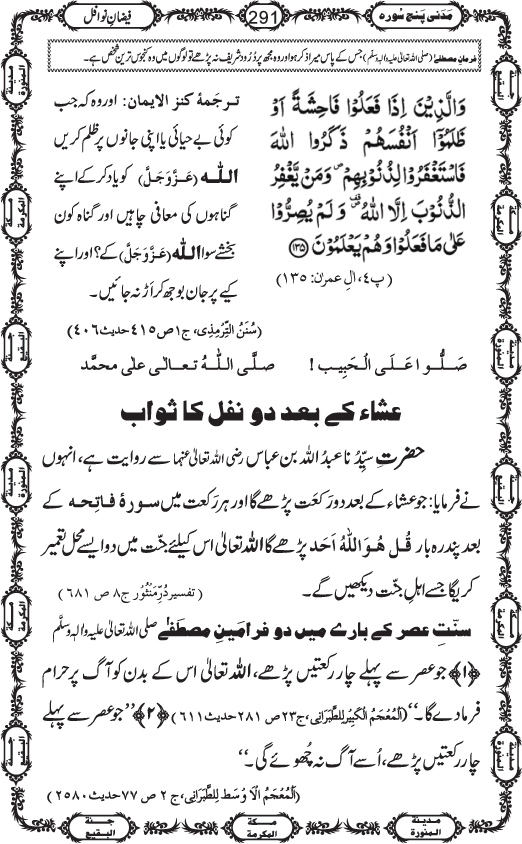 مَدَنی پنج سورہ
291
فیضانِ نوافل
فرمانِ مصطفےٰ (صلی اللہ تعالیٰ علیہ واٰلہ وسلم) جس کے پاس میرا ذکر ہو اور وہ مجھ پر دُرُود شریف نہ پڑھے تو لوگوں میں وہ کنجوس ترین شخص ہے۔
وَالَّذِیْنَ اِذَا فَعَلُوْا فَاحِشَةً اَوْ
ظَلَمُوْۤا اَنْفُسَهُمْ ذَكَرُوا اللّٰهَ
فَاسْتَغْفَرُوْا لِذُنُوْبِهِمْ۪ وَمَنْ یَّغْفِرُ
الذُّنُوْبَ اِلَّا اللّٰهُ ﳑ وَلَمْ یُصِرُّوْا
عَلٰى مَا فَعَلُوْا وَهُمْ یَعْلَمُوْنَ ﴿۱۳۵﴾
(پ۴، اٰلِ عمرٰن: ۱۳۵)
ترجمۂ کنز الایمان: اور وہ کہ جب
کوئی بے حیائی یا اپنی جانوں پر ظلم کریں
اللّٰہ (عَزَّوَجَلَّ) کو یاد کر کے اپنے
گناہوں کی معافی چاہیں اور گناہ کون
بخشے سوا اللّٰہ (عَزَّوَجَلَّ) کے؟ اور اپنے
کیے پر جان بوجھ کر اَڑ نہ جائیں۔
(سُنَنُ التِّرْمِذِی، ج۱ ص۴۱۵ حدیث۴۰۶)
صَلُّوا عَلَی الْحَبِیب! صلَّی اللّٰہُ تعالٰی علٰی محمَّد
عشاء کے بعد دو نفل کا ثواب
حضرتِ سیِّدُنا عبدُ اللّٰہ بن عباس رضی اللہ تعالیٰ عنہما سے روایت ہے، انہوں
نے فرمایا: جو عشاء کے بعد دو رَکعت پڑھے گا اور ہر رَکعت میں سورۂ فاتحہ کے
بعد پندرہ بار قُل ھُوَ اللّٰہُ اَحَد پڑھے گا اللّٰہ تعالیٰ اس کیلئے جنّت میں دو ایسے محل تعمیر
کریگا جسے اہلِ جنّت دیکھیں گے۔ (تفسیر دُرِّ مَنْثُوْر ج۸ ص ۶۸۱)
سنّتِ عصر کے بارے میں دو فرامینِ مصطَفٰے صلی اللہ تعالیٰ علیہ واٰلہٖ وسلَّم
﴿۱﴾ جو عصر سے پہلے چار رکعتیں پڑھے، اللّٰہ تعالیٰ اس کے بدن کو آگ پر حرام
فرمادے گا۔“ (اَلْمُعْجَمُ الْکَبِیْر لِلطَّبَرَانِی، ج۲۳ ص ۲۸۱ حدیث۶۱۱) ﴿۲﴾ ”جو عصر سے پہلے
چار رکعتیں پڑھے، اُسے آگ نہ چُھوئے گی۔“
(اَلْمُعْجَمُ الْاَوْسَط لِلطَّبَرَانِی، ج۲ ص ۷۷ حدیث۲۵۸۰)
مدینۃ المنورۃ
جنۃ البقیع
مکۃ المکرمۃ
مکۃ المکرمۃ
جنۃ البقیع
مدینۃ المنورۃ
مدینۃ المنورۃ
جنۃ البقیع
مکۃ المکرمۃ
مکۃ المکرمۃ
جنۃ البقیع
مدینۃ المنورۃ
جنۃ البقیع
مکۃ المکرمۃ
مدینۃ المنورۃ